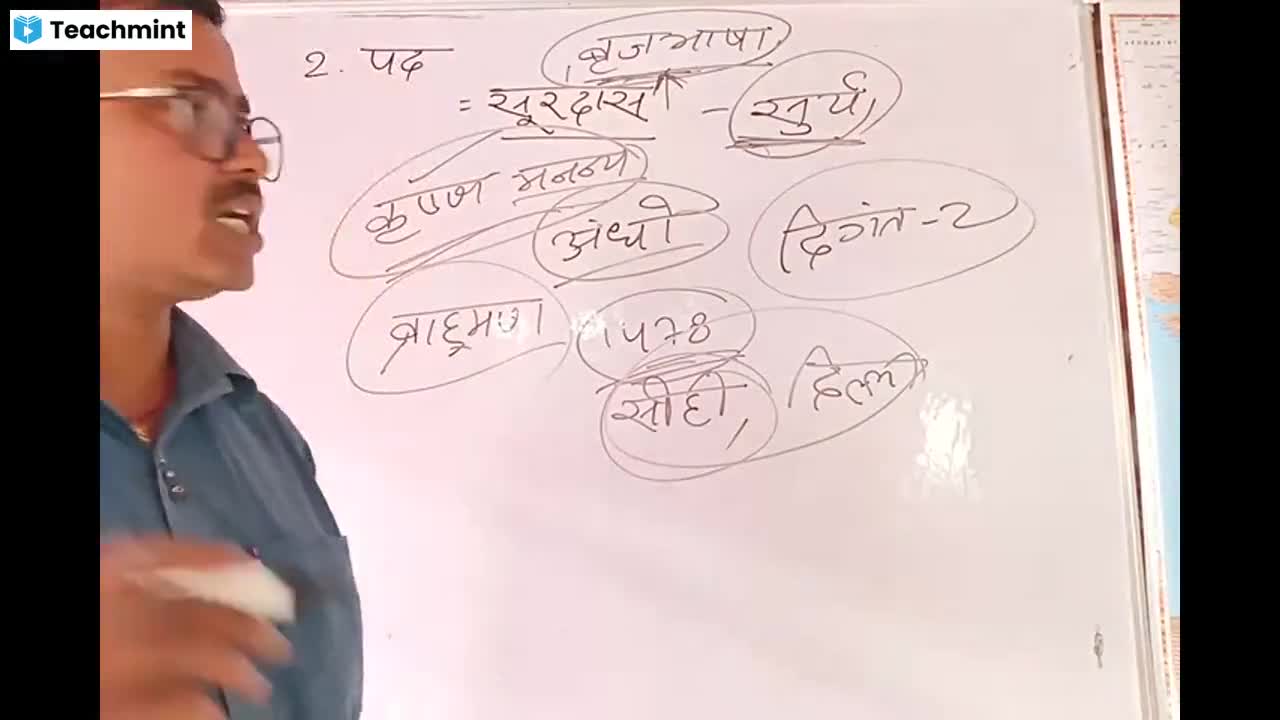 Teachmint
2. पद
बृजभाषा
= सूरदास - सुर्य,
कृष्ण मनन्य
अंधो
दिगंत-2
ब्राह्मण
1578
सीही, दिल्ली